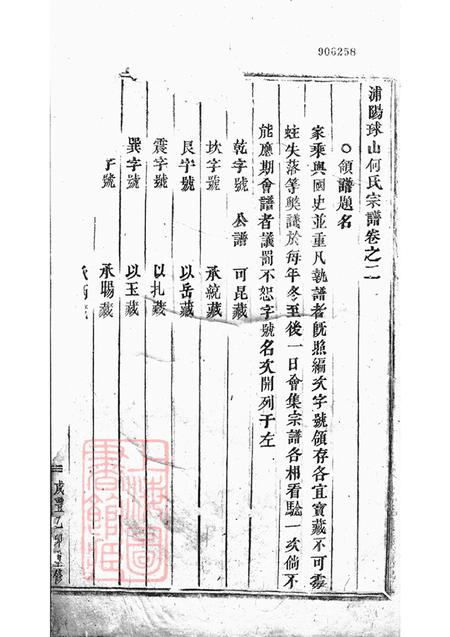 906258
浦陽球山何氏宗譜卷之二
○領譜題名
家乘與國史並重凡執譜者既照編次字號領存各宜寶藏不可霉
蛀失落等獘議於每年冬至後一日會集宗譜各相看驗一次倘不
能應期會譜者議罰不恕字號名次開列于左
乾字號 公譜 可昆藏
坎字號 承統藏
艮字號 以岳藏
震字號 以扎藏
巽字號 以玉藏
字號 承暘藏
咸豐乙卯重修
上海圖書館藏